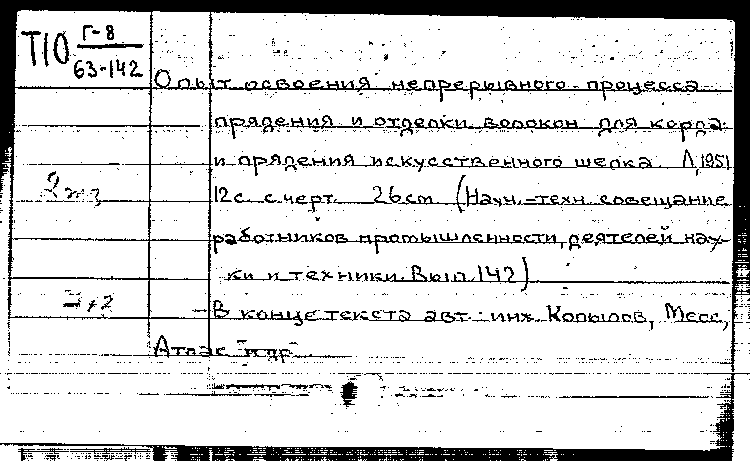 Т10 Г-8
63-142
Опыт освоения непрерывного процесса
прядения и отделки волокон для корда
и прядения искусственного шелка. Л, 1951
2 экз
12 с. с черт. 26 cm (Научн.-техн. совещание
работников промышленности, деятелей нау-
ки и техники. Вып. 142)
- В конце текста авт.: инж. Копылов, Месс,
Атлас и др.